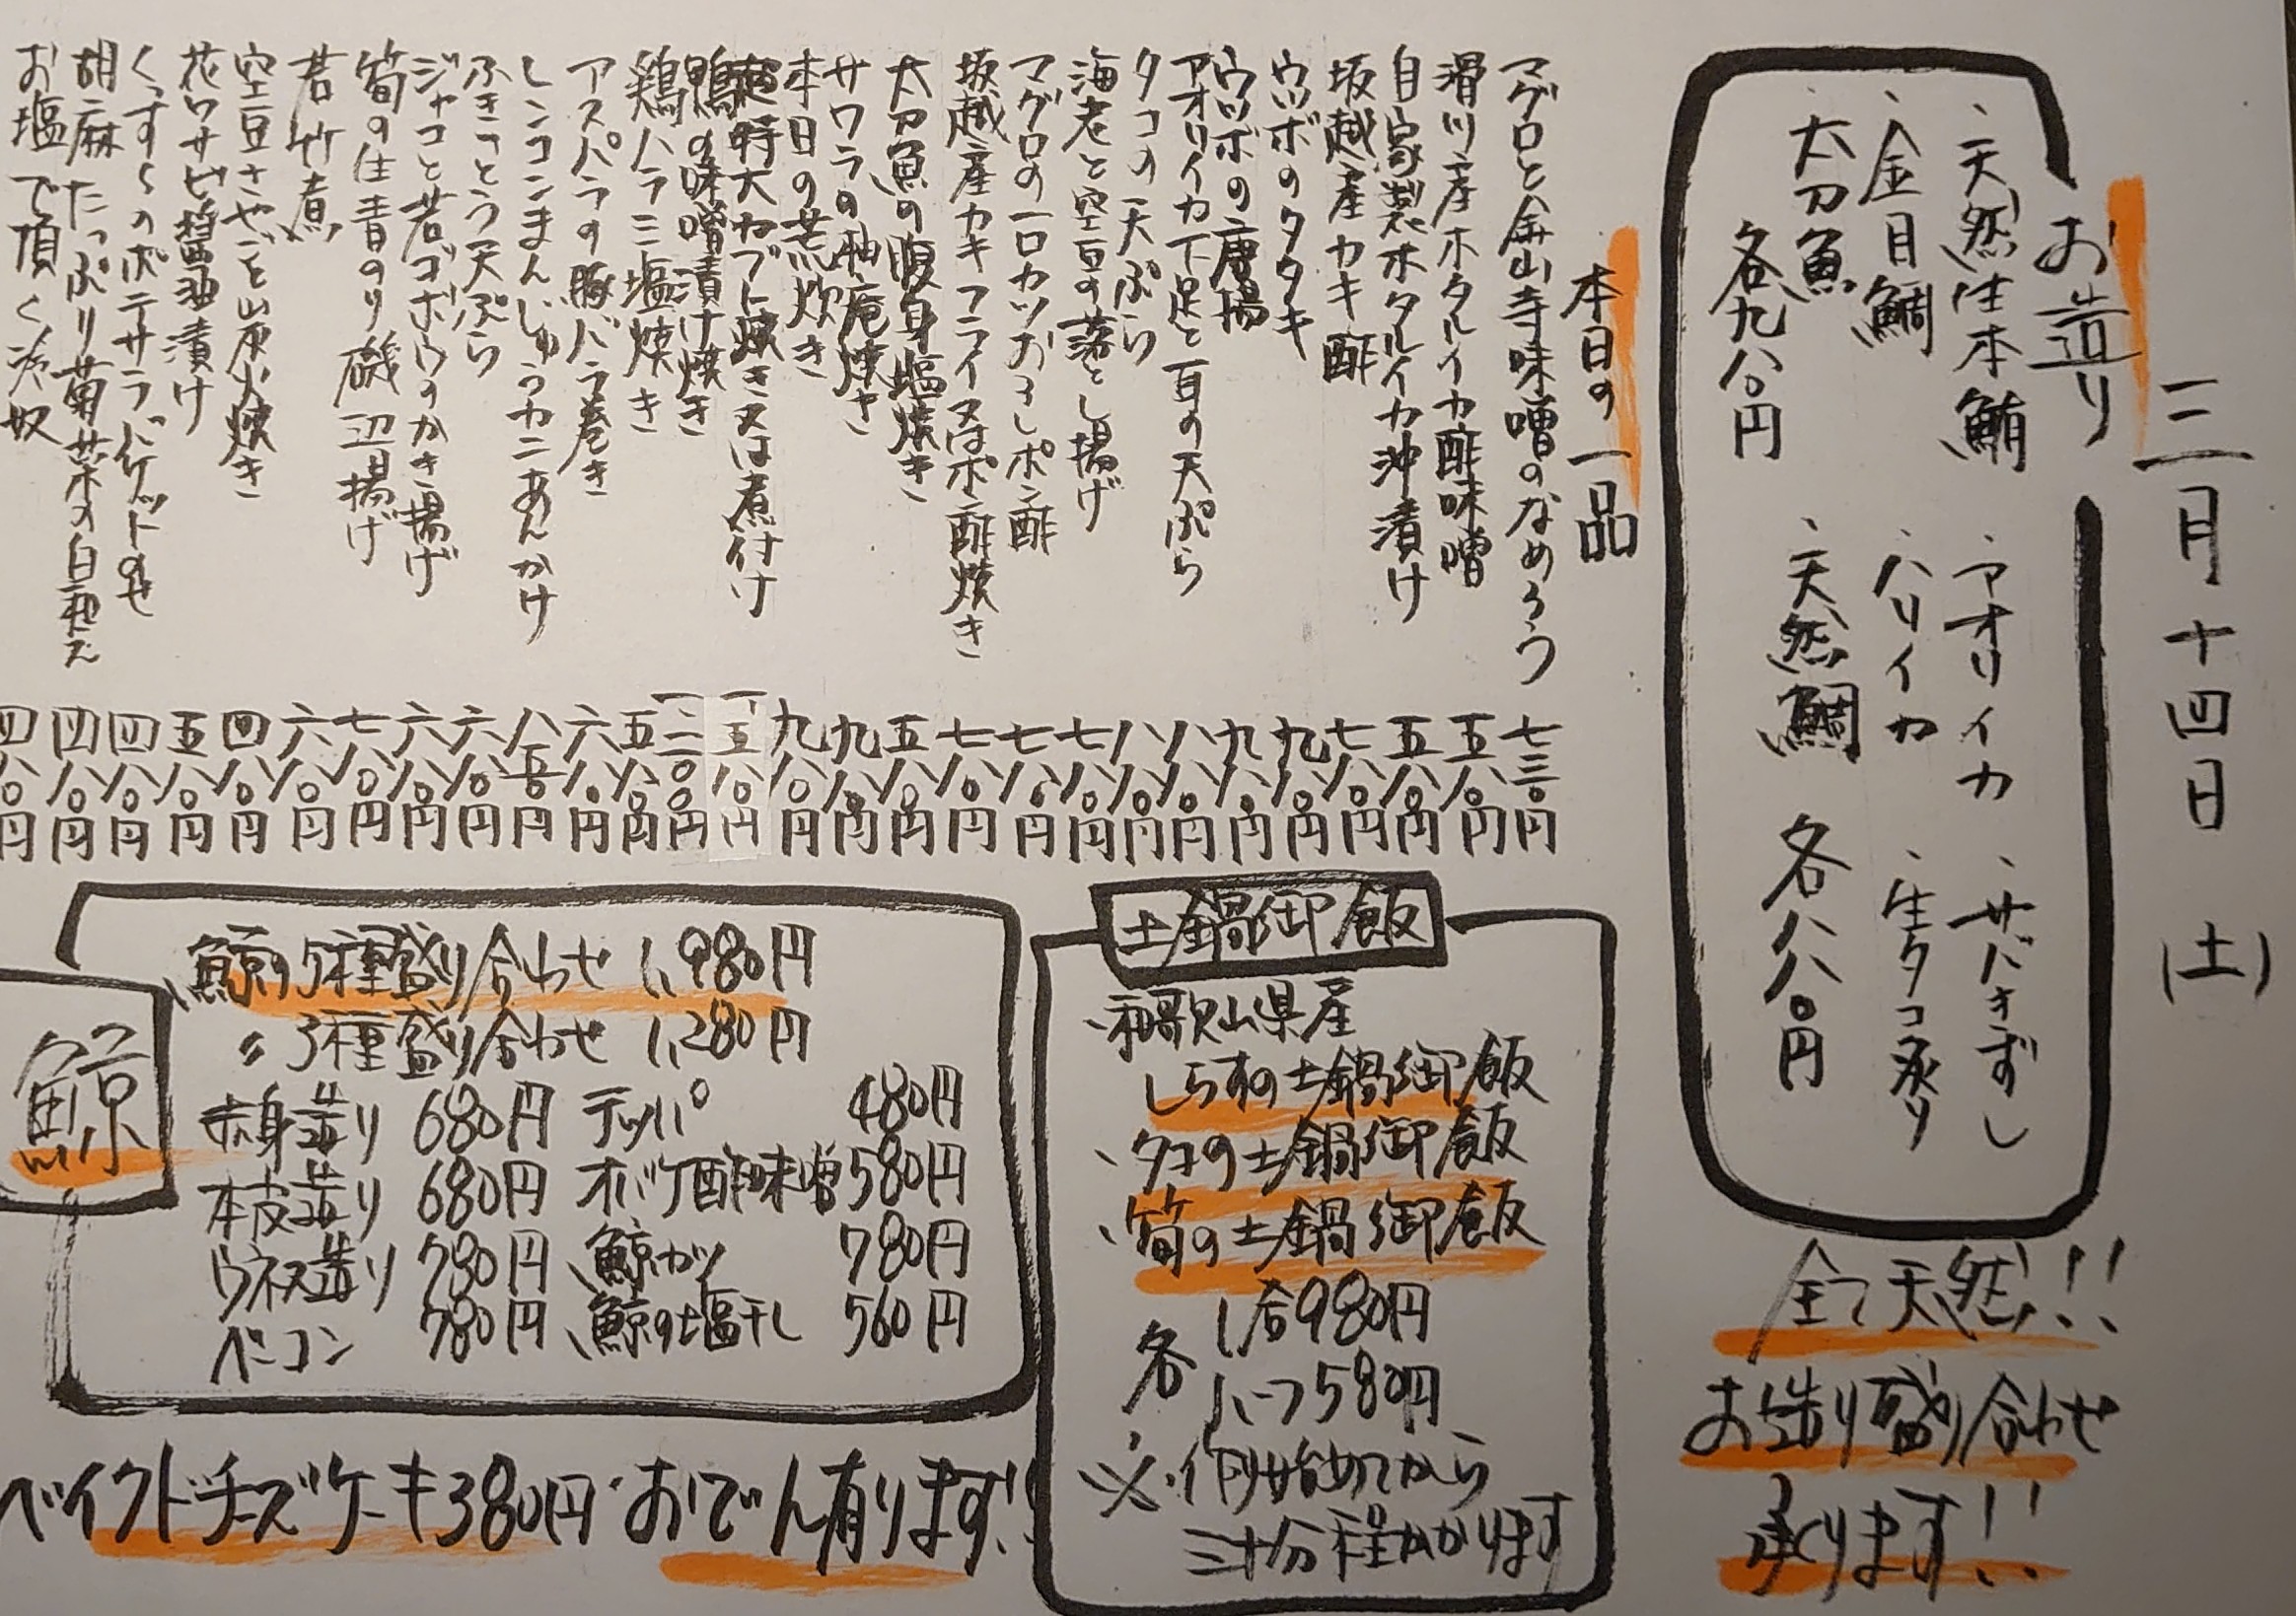 三月十四日(土)
お造り
、天然生本鮪 、アオリイカ 、サバきずし
、金目鯛 、ハリイカ 、生タコ炙り
、太刀魚 、天然鯛
各九八〇円 各八八〇円
全て天然!!
お造り盛り合わせ
承ります!!
本日の一品
マグロと金山寺味噌のなめろう 七三〇円
滑川産ホタルイカ酢味噌 五八〇円
自家製ホタルイカ沖漬け 五八〇円
坂越産カキ酢 七八〇円
ウツボのタタキ 九八〇円
ウツボの唐揚 九八〇円
アオリイカ下足と耳の天ぷら 八八〇円
タコの天ぷら 八八〇円
海老と空豆の落とし揚げ 七八〇円
マグロの一口カツおろしポン酢 七八〇円
坂越産カキフライ又はポン酢焼き 七八〇円
太刀魚の腹身塩焼き 五八〇円
サワラの柚庵焼き 九八〇円
本日の荒炊き 九八〇円
超特大カブト焼き又は煮付け 一、五八〇円
鴨の味噌漬け焼き 一二〇〇円
鶏ハラミ塩焼き 五八〇円
アスパラの豚バラ巻き 六八〇円
レンコンまんじゅうカニあんかけ 八五〇円
ふきのとう天ぷら 六八〇円
ジャコと若ゴボウのかき揚げ 六八〇円
筍の生青のり磯辺揚げ 七八〇円
若竹煮 六八〇円
空豆さやごと炭火焼き 四八〇円
花ワサビ醤油漬け 五八〇円
くずし のポテサラ バゲットのせ 四八〇円
胡麻たっぷり菊菜の白和え 四八〇円
お塩で頂く冷奴 四八〇円
土鍋御飯
、和歌山県産
しらすの土鍋御飯
、タコの土鍋御飯
、筍の土鍋御飯
各 1合980円
ハーフ580円
※作り始めてから
三十分程かかります
鯨
、鯨の5種盛り合わせ 1,980円
〃3種盛り合わせ 1,280円
赤身造り 680円 テッパ 480円
本皮造り 680円 オバケ酢味噌 580円
ウネス造り 780円 、鯨カツ 780円
ベーコン 780円 、鯨の塩干し 560円
ベイクドチーズケーキ380円・おでん有ります!!